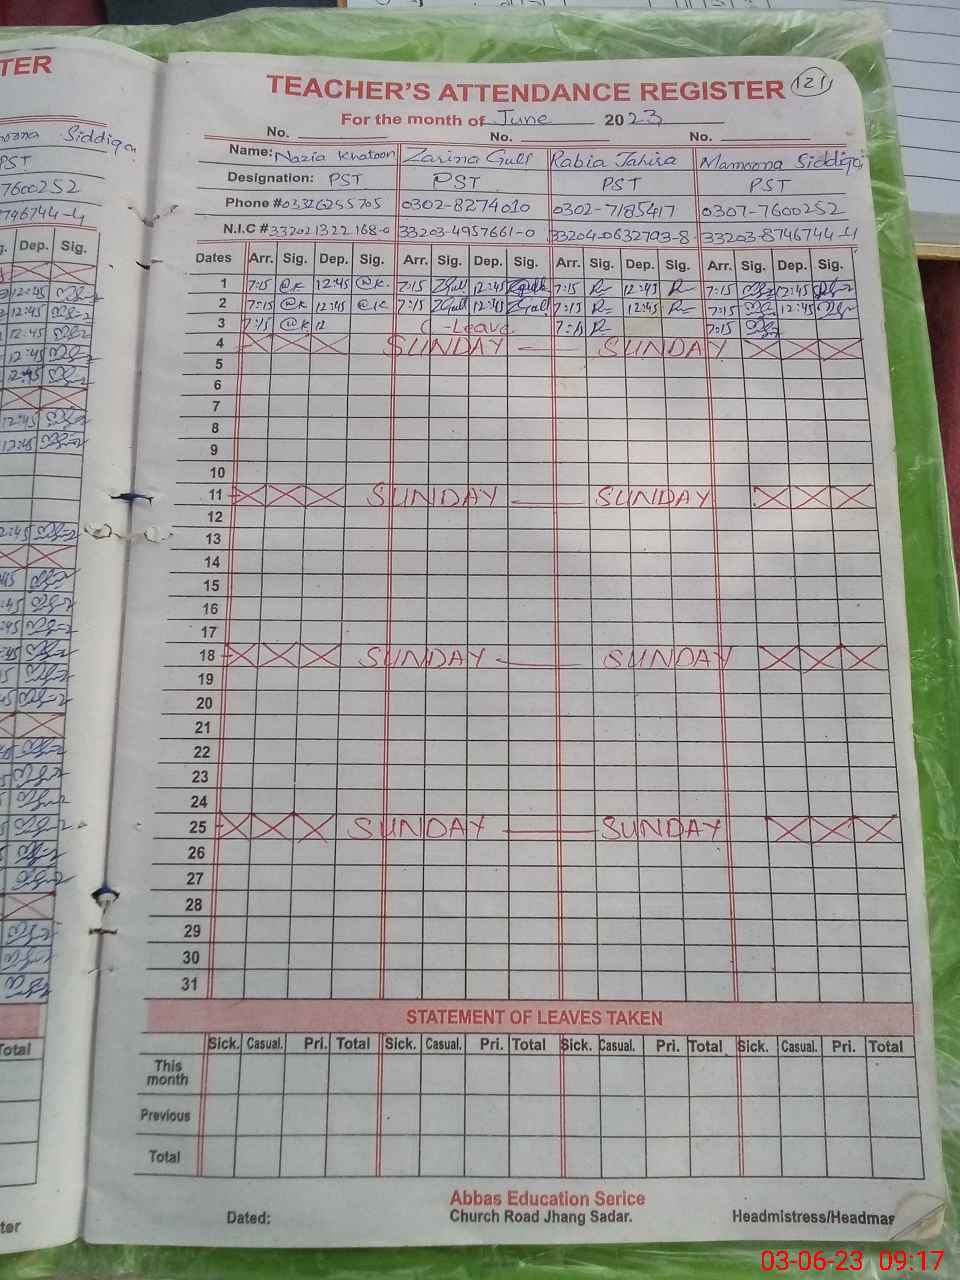 TER
Siddiqa
PST
7600252
8746744-4
Dep. Sig.
12:45
12:45
12:45
12:45
12:45
12:45
12:45
Total
TEACHER'S ATTENDANCE REGISTER 121
For the month of June 2023
No. No. No.
Name: Nazia Khatoon Zarina Gull Rabia Tahira Mamoona Siddiqa
Designation: PST PST PST PST
Phone # 03326255705 0302-8274010 0302-7185417 0307-7600252
N.I.C # 332021322168-0 33203-4957661-0 33204-0632793-8 33203-8746744-4
Dates Arr. Sig. Dep. Sig. Arr. Sig. Dep. Sig. Arr. Sig. Dep. Sig. Arr. Sig. Dep. Sig.
1 7:15 @K 12:45 @K 7:15 ZGull 12:45 ZGull 7:15 R 12:45 R 7:15 12:45
2 7:15 @K 12:45 @K 7:15 ZGull 12:45 ZGull 7:15 R 12:45 R 7:15 12:45
3 7:15 @K 12 C-Leave 7:15 R 7:15
4 SUNDAY — SUNDAY
5
6
7
8
9
10
11 SUNDAY — SUNDAY
12
13
14
15
16
17
18 SUNDAY — SUNDAY
19
20
21
22
23
24
25 SUNDAY — SUNDAY
26
27
28
29
30
31
STATEMENT OF LEAVES TAKEN
Sick. Casual. Pri. Total Sick. Casual. Pri. Total Sick. Casual. Pri. Total Sick. Casual. Pri. Total
This
month
Previous
Total
Abbas Education Serice
Dated: Church Road Jhang Sadar. Headmistress/Headmas
03-06-23 09:17